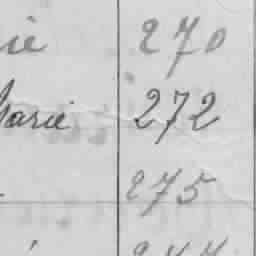 ie 270
Marie 272
275